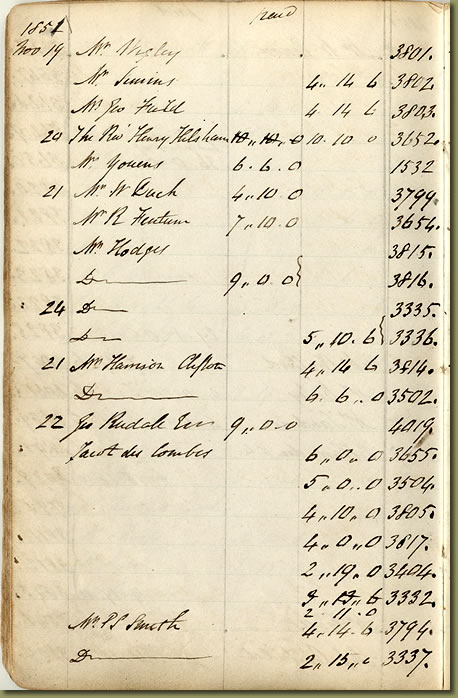 1851 paid
Nov 19 Mr Wigley 3801.
Mr Simins 4 „ 14 6 3802.
Mr Geo Field 4 14 6 3803.
20 The Rev Henry 10 „ 10 „ 0 10 . 10 0 3652.
Mr Youens 6 . 6 . 0 1532
21 Mr W 4 „ 10 . 0 3799
Mr R 7 „ 10 . 0 3654.
Mr Hodges 3815.
D 9 „ 0 . 0 } 3816.
24 D 3335.
D 5 „ 10 . 6 } 3336.
21 Mr Harrison Clifton 4 „ 14 6 3814.
D 6 . 6 „ 0 3502.
22 Geo Rudall 9 „ 0 . 0 4019
Jacot des Combes 6 „ 0 „ 0 3655.
5 „ 0 „ 0 3504.
4 „ 10 „ 0 3805.
4 „ 0 „ 0 3817.
2 „ 19 „ 0 3404.
„ 6 3332
2 11 . 0
Mr Smith 4 . 14 . 6 3794.
D 2 „ 15 „ 3337.